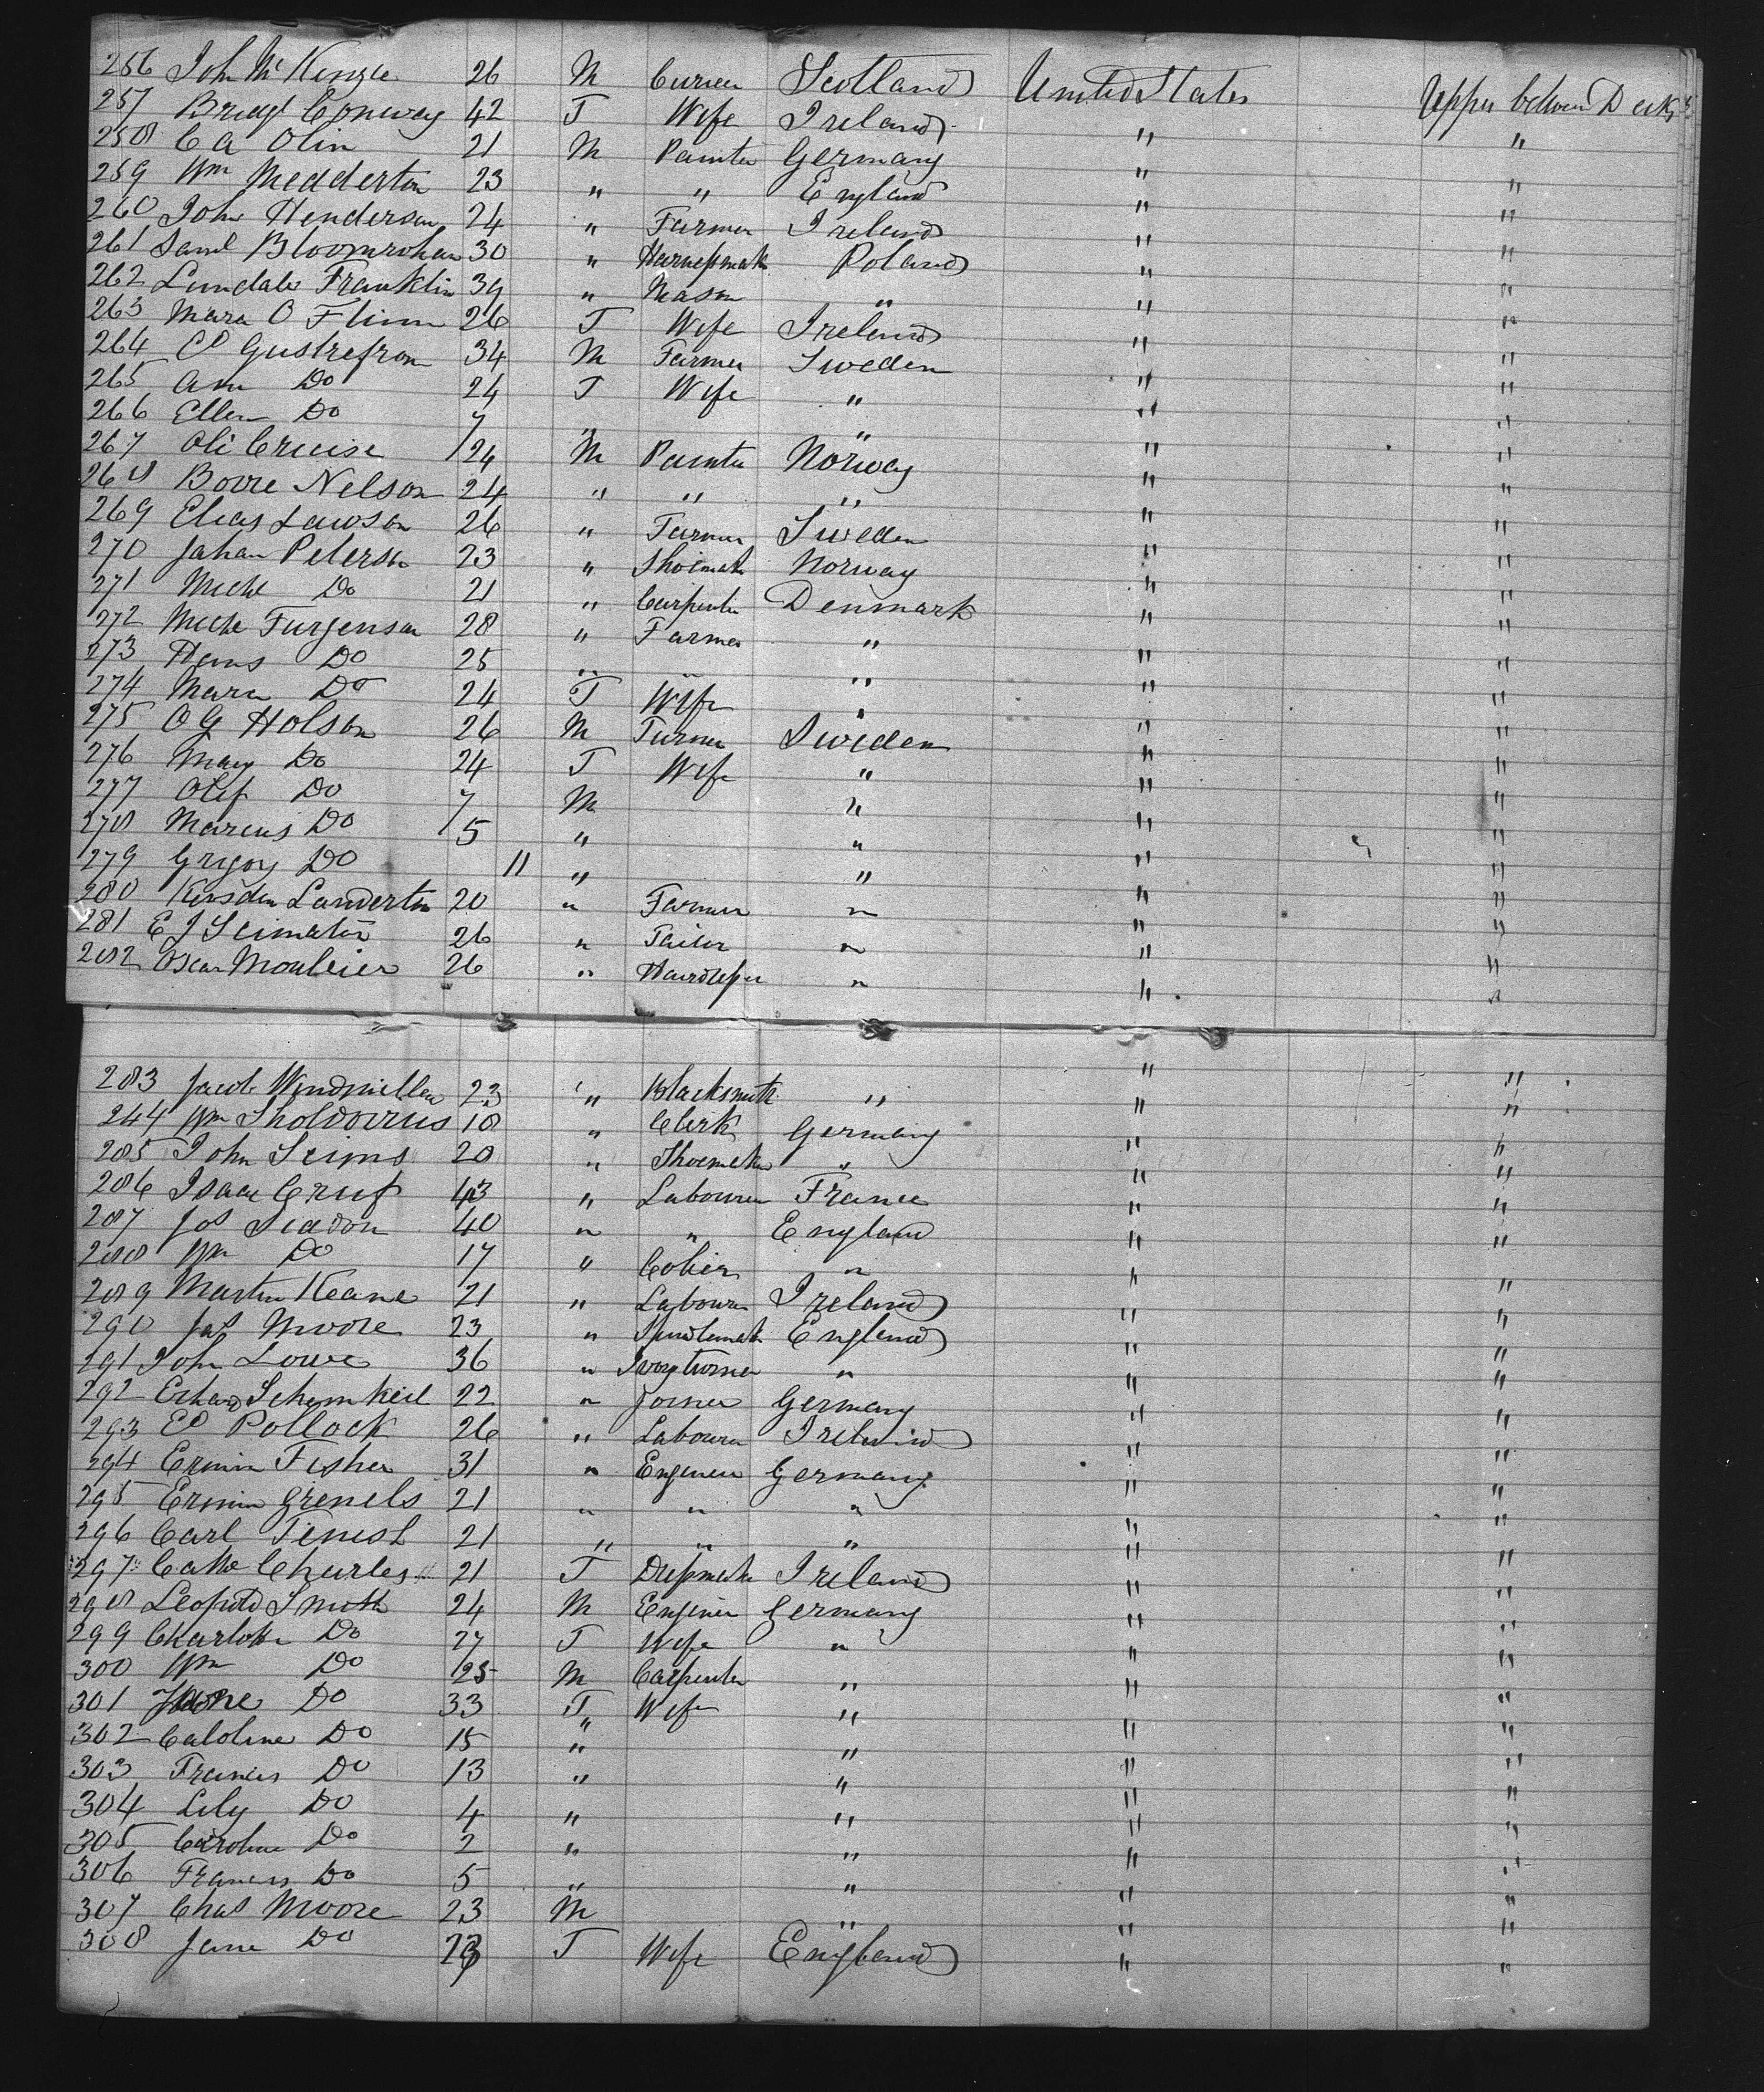 256 John McKenzie 26 M Currier Scotland United States Upper between Decks
257 Bridgt Conway 42 F Wife Ireland " "
258 C A Olin 21 M Painter Germany " "
259 Wm Medderton 23 " " England " "
260 John Henderson 24 " Farmer Ireland " "
261 Saml Bloomrohan 30 " Harnessmak Poland " "
262 Lundale Franklin 39 " Mason " " "
263 Mara O Flinn 26 F Wife Ireland " "
264 CO Gustrefron 34 M Farmer Sweden " "
265 Ann Do 24 F Wife " " "
266 Ellen Do 7 " " " "
267 Ole Cruise 24 M Painter Norway " "
268 Borre Nelson 24 " " " " "
269 Elias Lawson 26 " Farmer Sweden " "
270 Johan Peterson 23 " Shoemak Norway " "
271 Miche Do 21 " Carpenter Denmark " "
272 Miche Furgenson 28 " Farmer " " "
273 Hans Do 25 " " " " "
274 Mara Do 24 F Wife " " "
275 O G Holson 26 M Farmer Sweden " "
276 Mary Do 24 F Wife " " "
277 Olef Do 7 M " " "
278 Marcus Do 5 " " " "
279 Grigory Do 11 " " " "
280 Kersden Landerton 20 " Farmer " " "
281 E J Seimaton 26 " Tailor " " "
282 Oscar Mouleier 26 " Hairdresser " " "
283 Jacob Windmiller 23 " Blacksmith " " "
244 Wm Sholdorrus 18 " Clerk Germany " "
285 John Seims 20 " Shoemaker " " "
286 Isaac Cruf 43 " Labourer France " "
287 Jos Siadon 40 " " England " "
288 Wm Do 17 " Colier " " "
289 Martin Keane 21 " Labourer Ireland " "
290 Jas Moore 23 " Spindlemak England " "
291 John Lowe 36 " Ivory turner " " "
292 Erhard Schemkeil 22 " Joiner Germany " "
293 Ed Pollock 26 " Labourer Ireland " "
294 Ermin Fisher 31 " Engineer Germany " "
295 Ermin Grenels 21 " " " " "
296 Carl Finish 21 " " " " "
297 Cathe Charles 21 F Dressmak Ireland " "
298 Leopold Smith 24 M Enginer Germany " "
299 Charlotte Do 27 F Wife " " "
300 Wm Do 25 M Carpenter " " "
301 Jane Do 33 F Wife " " "
302 Caloline Do 15 " " " "
303 Francis Do 13 " " " "
304 Lily Do 4 " " " "
305 Caroline Do 2 " " " "
306 Francis Do 5 " " " "
307 Chas Moore 23 M " " "
308 Jane Do 23 F Wife England " "